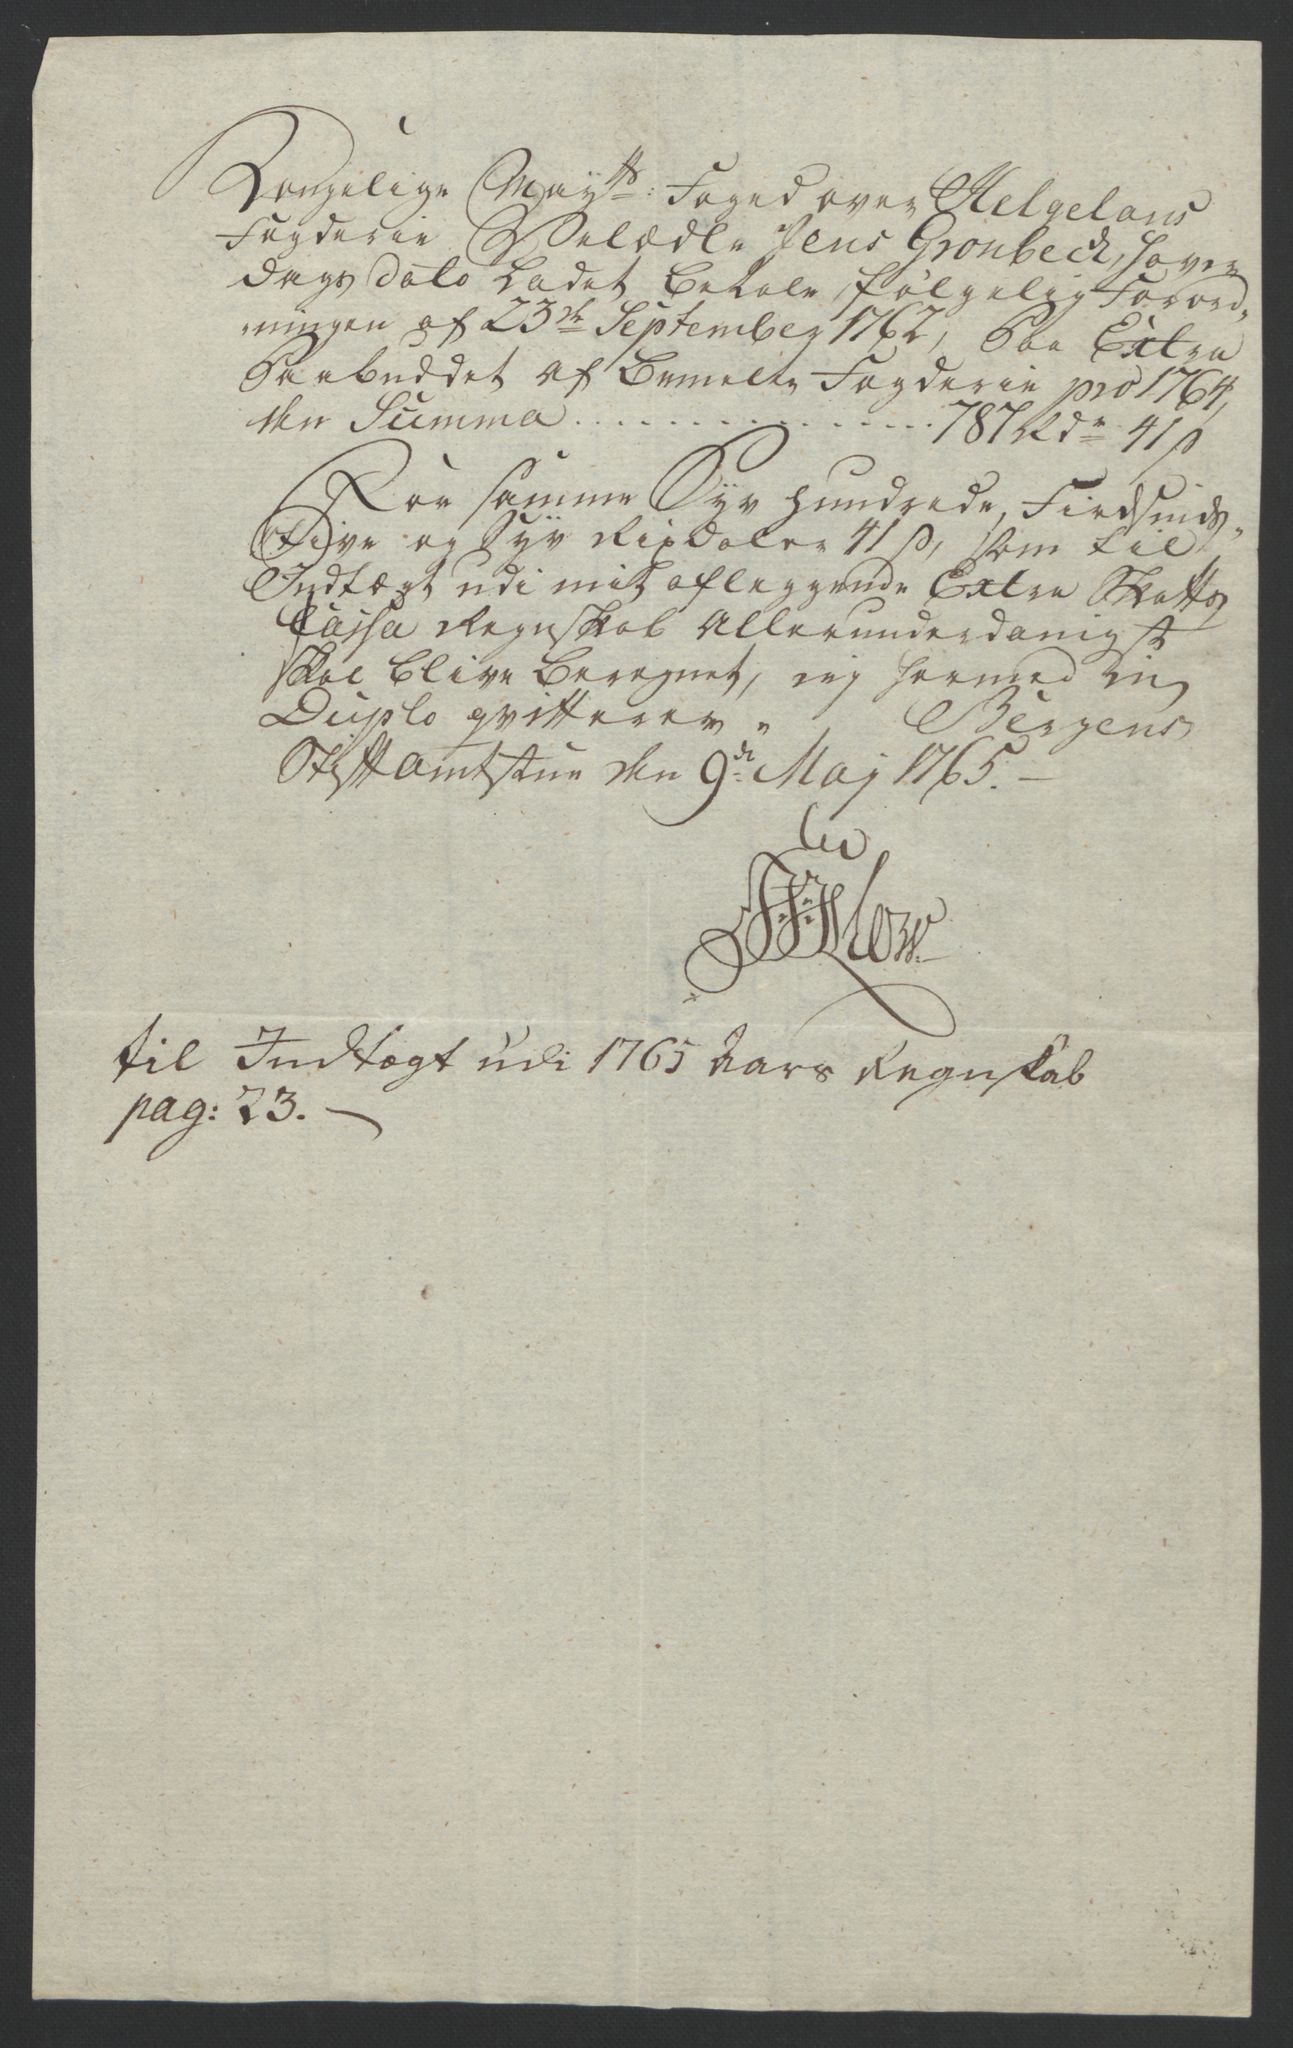 Kongelige May:tts Foged over Helgelans
Fogderie Velædle Jens Gronbeck, haver
dags dato ladet betale, følgelig Forord„
„ningen af 23de September 1762, Paa Extra
Paabuddet af bemelte Fogderie pro 1764,
den Summa . . . . . . . . . . . . . . . 787 Rdr 41 ß
For samme Syv hundrede, Firdsinds„
„tive og Syv Rixdaler 41 ß, som til
Indtægt udi mit aflæggende Extra Skatts
Cassa Regnskab Allerunderdanigst
skal blive beregnet, jeg hermed in
Duplo qvitterer„ Bergens
Stiftamtstue den 9de Maj 1765. —
til Indtægt udi 1765 Aars Regnskab
pag: 23. —